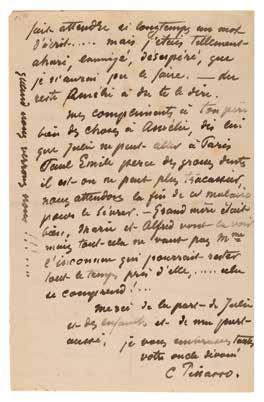 fait attendre si longtemps un mot
d'écrit..... mais j'étais tellement
ahuri, ennuyé, désespéré, que
je n'aurai pu le faire. — du
reste Amélie a du te le dire.
mes compliments à ton père
bien des choses à Amélie, dis lui
que Julie ne peut aller à Paris
Paul Emile perce des grosses dents
il est on ne peut plus tracassier,
nous attendons la fin de ce
pour le sevrer. — Grand mère était
bien, Marie et Alfred vont la voir
mais tout cela ne vaut pas Mme
qui pourrait rester
tout le temps près d'elle, ..... cela
se comprend!...
Merci de la part de Julie
et des enfants et de ma part
aussi, je vous embrasse toutes
votre oncle dévoué
C. Pissarro.
quand nous verrons nous!!.....